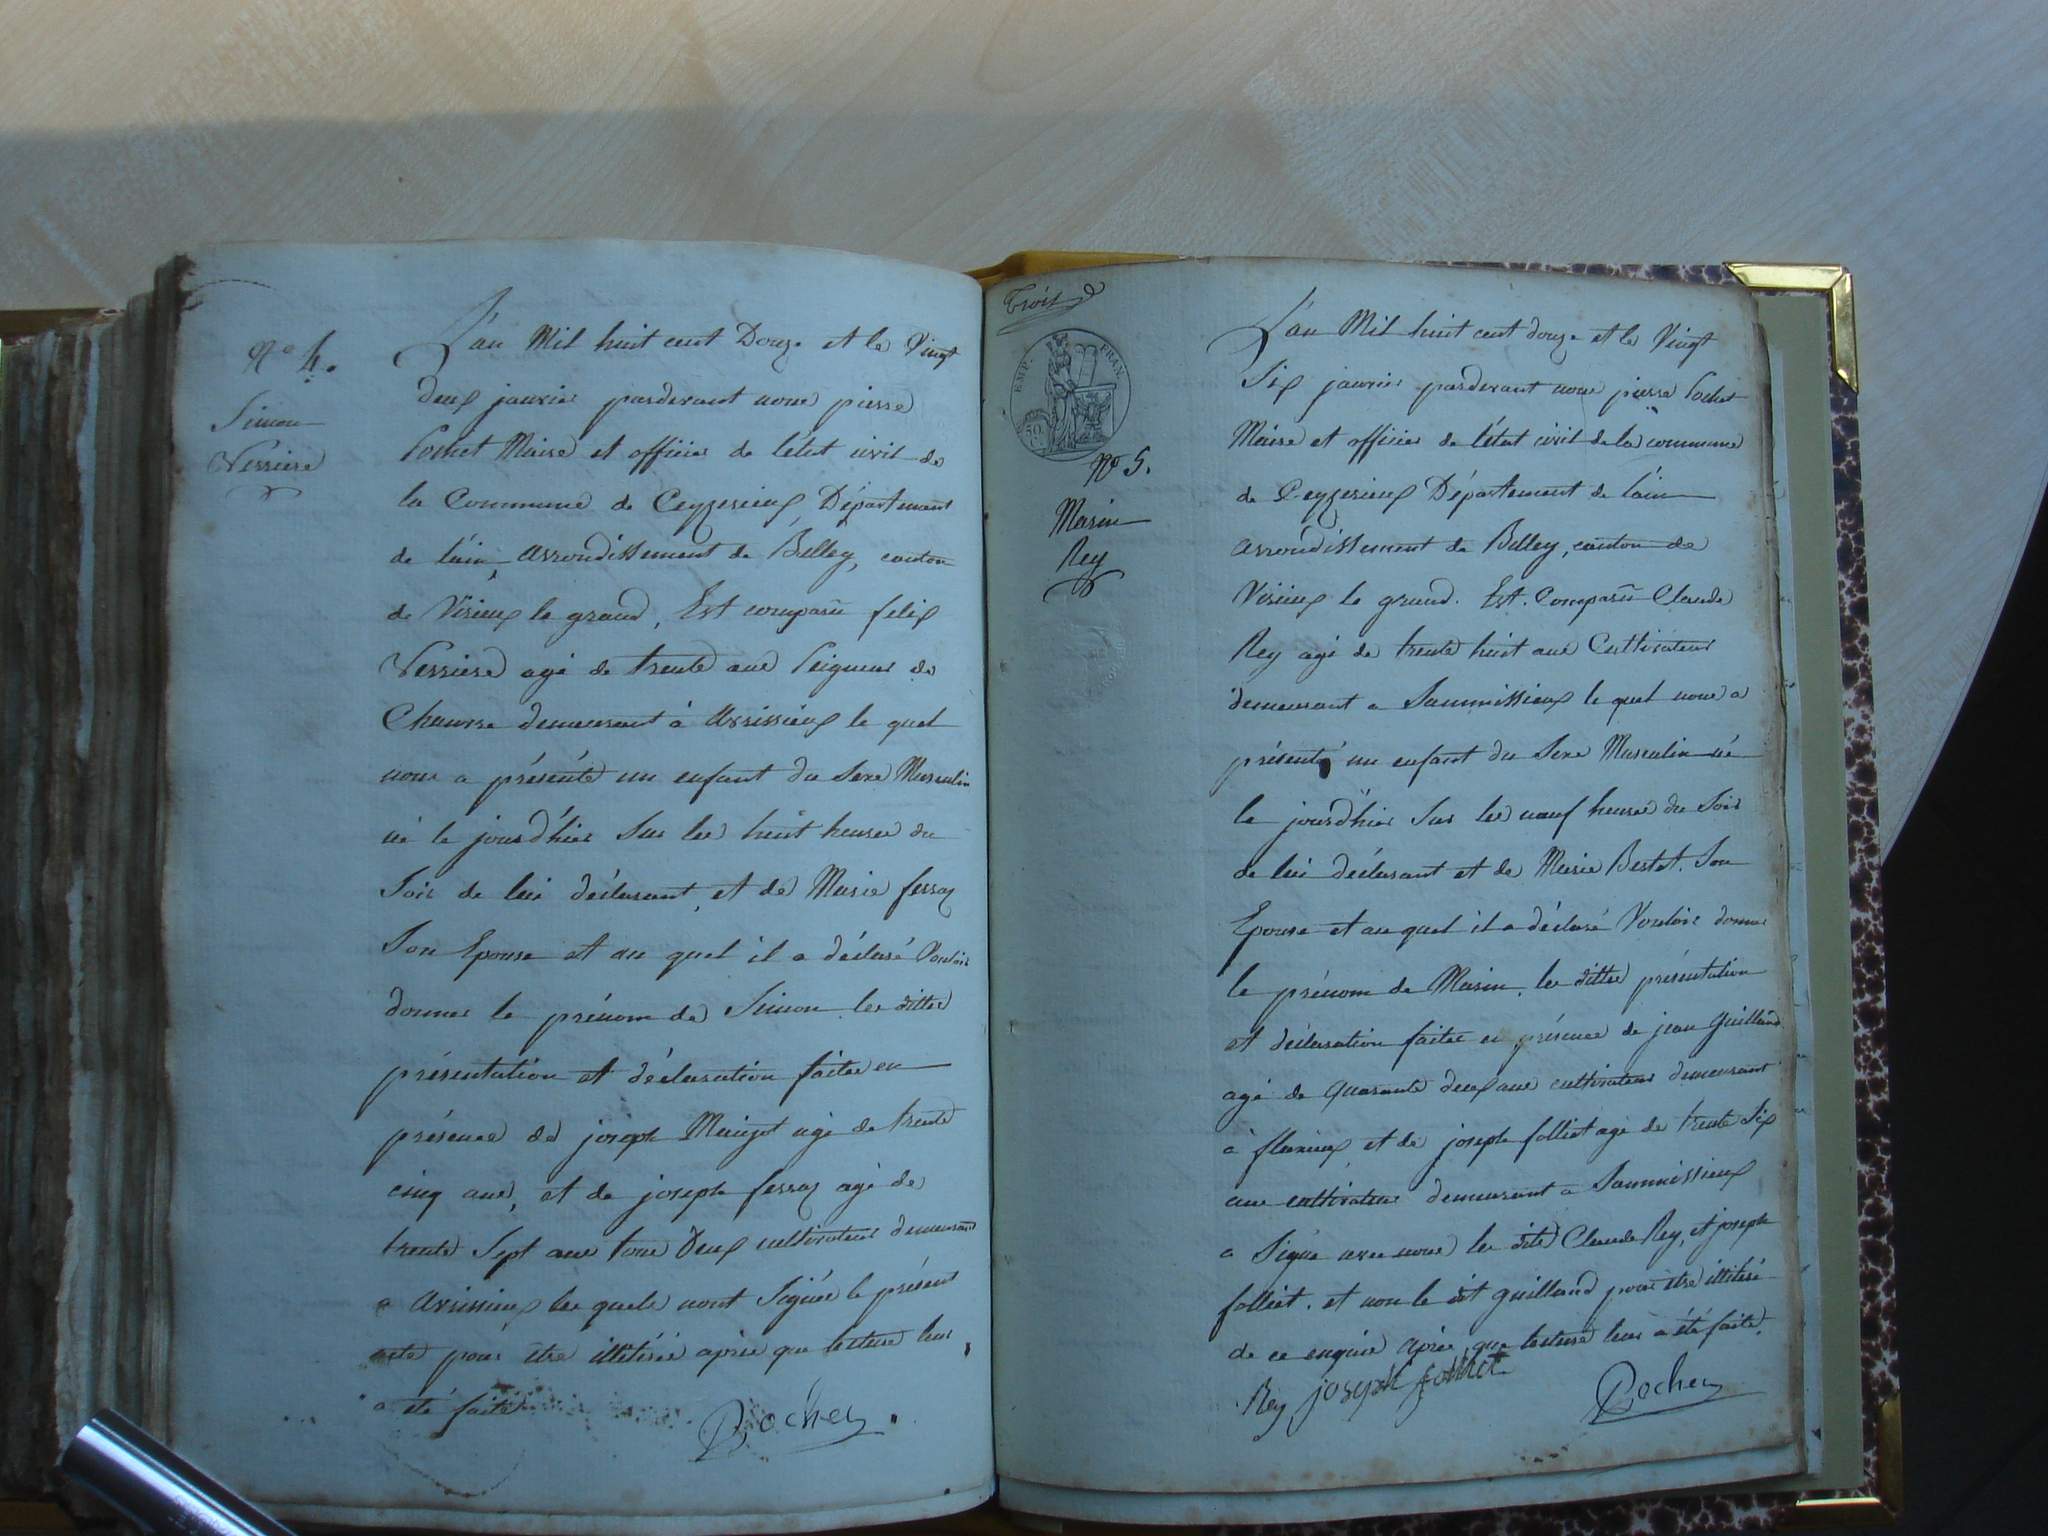 N° 4.
Simon
Verriere
L'an Mil huit cent Douze et le Vingt
deux janvier pardevant nous pierre
Pochet Maire et officier de l'état civil de
la Commune de Ceyzerieux Département
de l'ain, arrondissement de Belley, canton
de Virieux le grand, Est comparû felix
Verriere agé de trente ans Peigneur de
Chanvre demeurant à avrissieux le quel
nous a présenté un enfant du Sexe Masculin
né le jourd'hier Sur les huit heures du
Soir de lui déclarant, et de Marie ferraz
Son Epouse et au quel il a déclaré Vouloir
donner le prénom de Simon les dittes
présentation et déclaration faites en
présence de joseph agé de trente
cinq ans, et de joseph ferraz agé de
trente Sept ans tous Deux cultivateurs demeurant
a avrissieux les quels nont Signés le présent
acte pour être illitérés après que lecture leur
a été faite
Pochet
Trois
EMP. FRAN.
50 C.
N° 5.
Marin
Rey
L'an Mil huit cent douze et le Vingt
Six janvier pardevant nous pierre Pochet
Maire et officier de l'état civil de la commune
de Ceyzerieux Département de l'ain
arrondissement de Belley, canton de
Virieux le grand. Est. Comparû Claude
Rey agé de trente huit ans Cultivateur
demeurant a Sammissieux le quel nous a
présenté un enfant du Sexe Masculin né
le jourd'hier Sur les neuf heures du Soir
de lui déclarant et de Marie Bertet. Son
Epouse et au quel il a déclaré Vouloir donner
le prénom de Marin. les dittes présentation
et déclaration faites en présence de jean Guilland
agé de quarante deux ans cultivateur demeurant
à flaxieux et de joseph folliet agé de trente Six
ans cultivateur demeurant a Sammissieux
a Signé avec nous les dits Claude Rey, et joseph
folliet. et non le dit guilland pour être illitéré
de ce enquis après que lecture leur a été faite.
Rey joseph folliet
Pochet